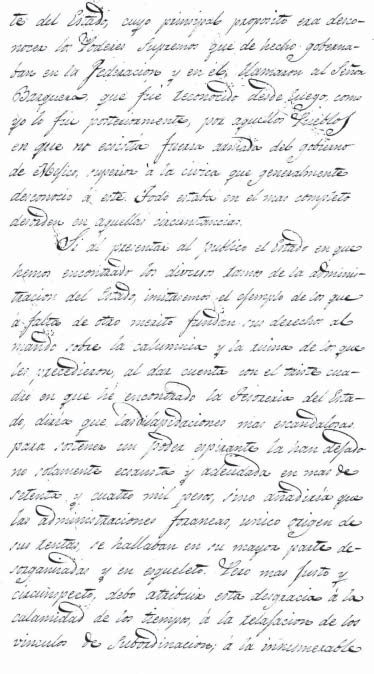 te del Estado, cuyo principal proposito era desco-
nocer los Poderes Supremos que de hecho goberna-
ban en la Federacion y en el, llamaron al Señor
Barquera, que fue reconocido desde luego, como
yo lo fui posteriormente, por aquellos Pueblos
en que no ecsistia fuersa armada del gobierno
de Mejico, superior á la civica que generalmente
desconocio á este. Todo estaba en el mas completo
desorden en aquellas circunstancias.
Si al presentar al publico el Estado en que
hemos encontrado los diversos ramos de la adminis-
tracion del Estado, imitaremos el ejemplo de los que
á falta de otro merito fundan su derecho al
mando sobre la calumnia y la ruina de los que
les precedieron, al dar cuenta con el triste cua-
dro en que hé encontrado la Tesoreria del Esta-
do, diria que las dilapidaciones mas escandalosas
para sostener un poder espirante la han dejado
no solamente ecsausta y adeudada en mas de
setenta y cuatro mil pesos, sino añadiria que
las administraciones foraneas, unico origen de
sus rentas, se hallaban en su mayor parte de-
sorganisadas y en esqueleto. Pero mas justo y
circunspecto, debo atribuir esta desgracia á la
calamidad de los tiempos, á la relajacion de los
vinculos de subordinacion; á la innumerable